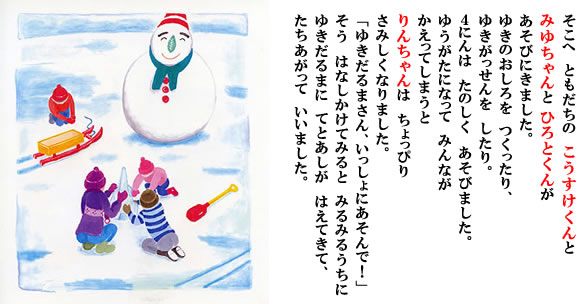 そこへ ともだちの こうすけくんと
みゆちゃんと ひろとくんが
あそびにきました。
ゆきのおしろを つくったり、
ゆきがっせんを したり。
4にんは たのしく あそびました。
ゆうがたになって みんなが
かえってしまうと
りんちゃんは ちょっぴり
さみしくなりました。
「ゆきだるまさん、いっしょにあそんで!」
そう はなしかけてみると みるみるうちに
ゆきだるまに てとあしが はえてきて、
たちあがって いいました。